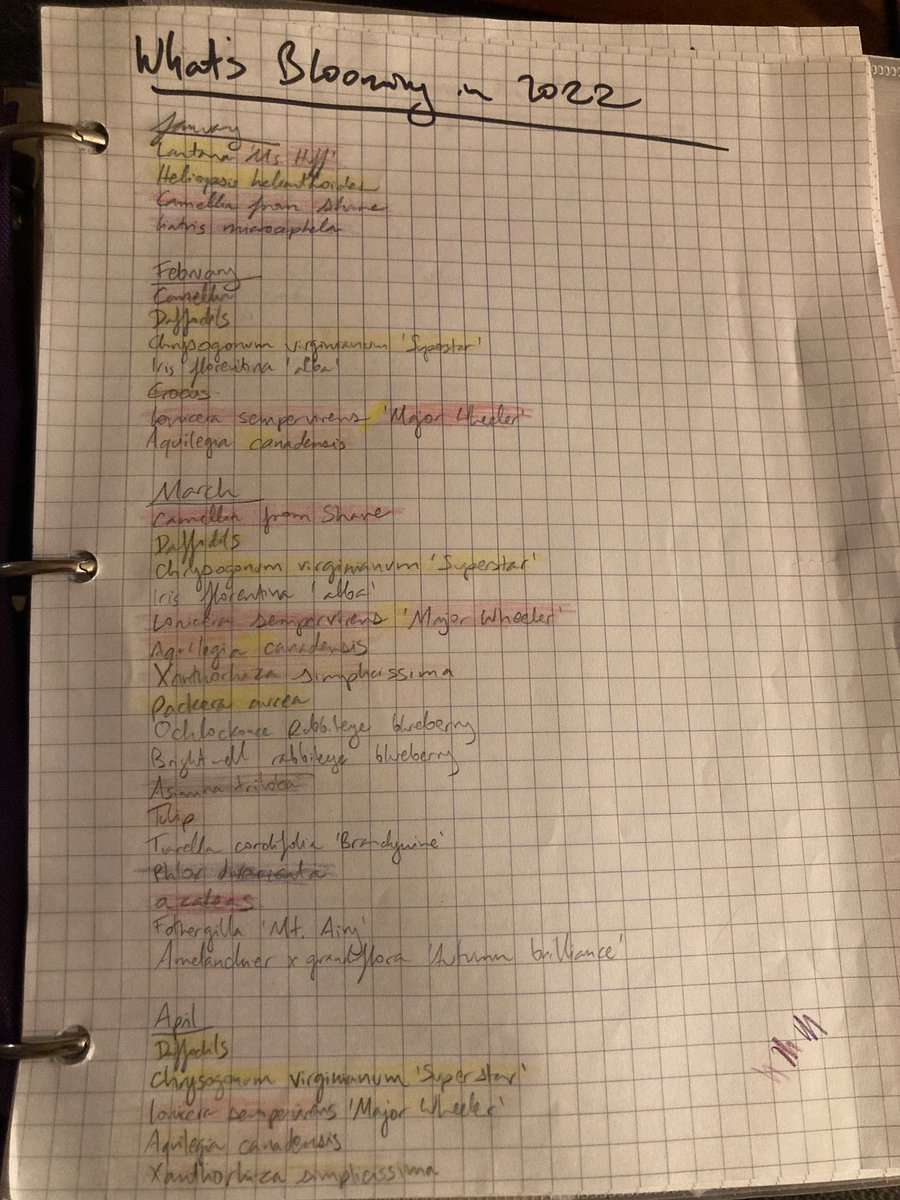 What's Blooming in 2022
January
Lantana 'Ms Huff'
Heliopsis helianthoides
Camellia from Shane
liatris
February
Camellia
Daffodils
Chrysogonum virginianum 'Superstar'
Iris florentina 'alba'
Crocus
Lonicera sempervirens 'Major Wheeler'
Aquilegia canadensis
March
Camellia from Shane
Daffodils
Chrysogonum virginianum 'Superstar'
Iris florentina 'alba'
Lonicera sempervirens 'Major Wheeler'
Aquilegia canadensis
Xanthorhiza simplicissima
Packera aurea
Ochlockonee Rabbiteye blueberry
Brightwell rabbiteye blueberry
Asimina triloba
Tulip
Tiarella cordifolia 'Brandywine'
Phlox divaricata
azaleas
Fothergilla 'Mt. Airy'
x grandiflora 'Autumn brilliance'
April
Daffodils
Chrysogonum virginianum 'Superstar'
Lonicera sempervirens 'Major Wheeler'
Aquilegia canadensis
Xanthorhiza simplicissima